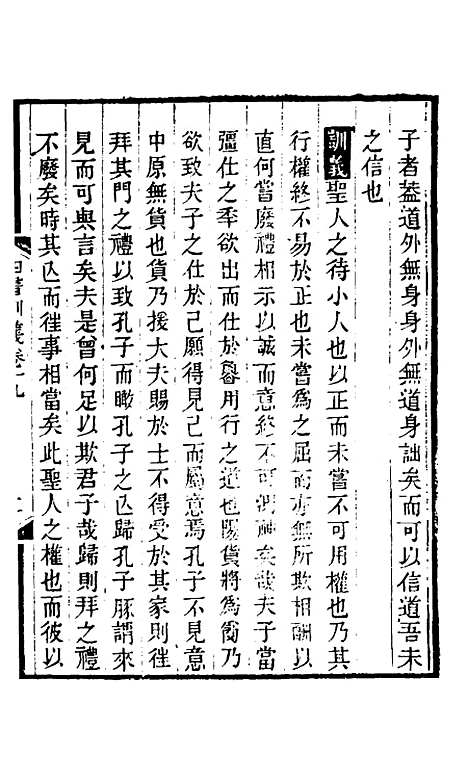 子者葢道外無身身外無道身詘矣而可以信道吾未
之信也
訓義聖人之待小人也以正而未嘗不可用權也乃其
行權終不易於正也未嘗爲之屈而亦無所欺相酬以
直何嘗廢禮相示以誠而意終不可測
矣哉夫子當
彊仕之年欲出而仕於魯用行之道也陽貨將爲
乃
欲致夫子之仕於己願得見己而屬意焉孔子不見意
中原無貨也貨乃援大夫賜於士不得受於其家則徃
拜其門之禮以致孔子而瞰孔子之亾歸孔子豚謂來
見而可與言矣夫是曾何足以欺君子哉歸則拜之禮
不廢矣時其亾而徃事相當矣此聖人之權也而彼以
四書訓義卷十九